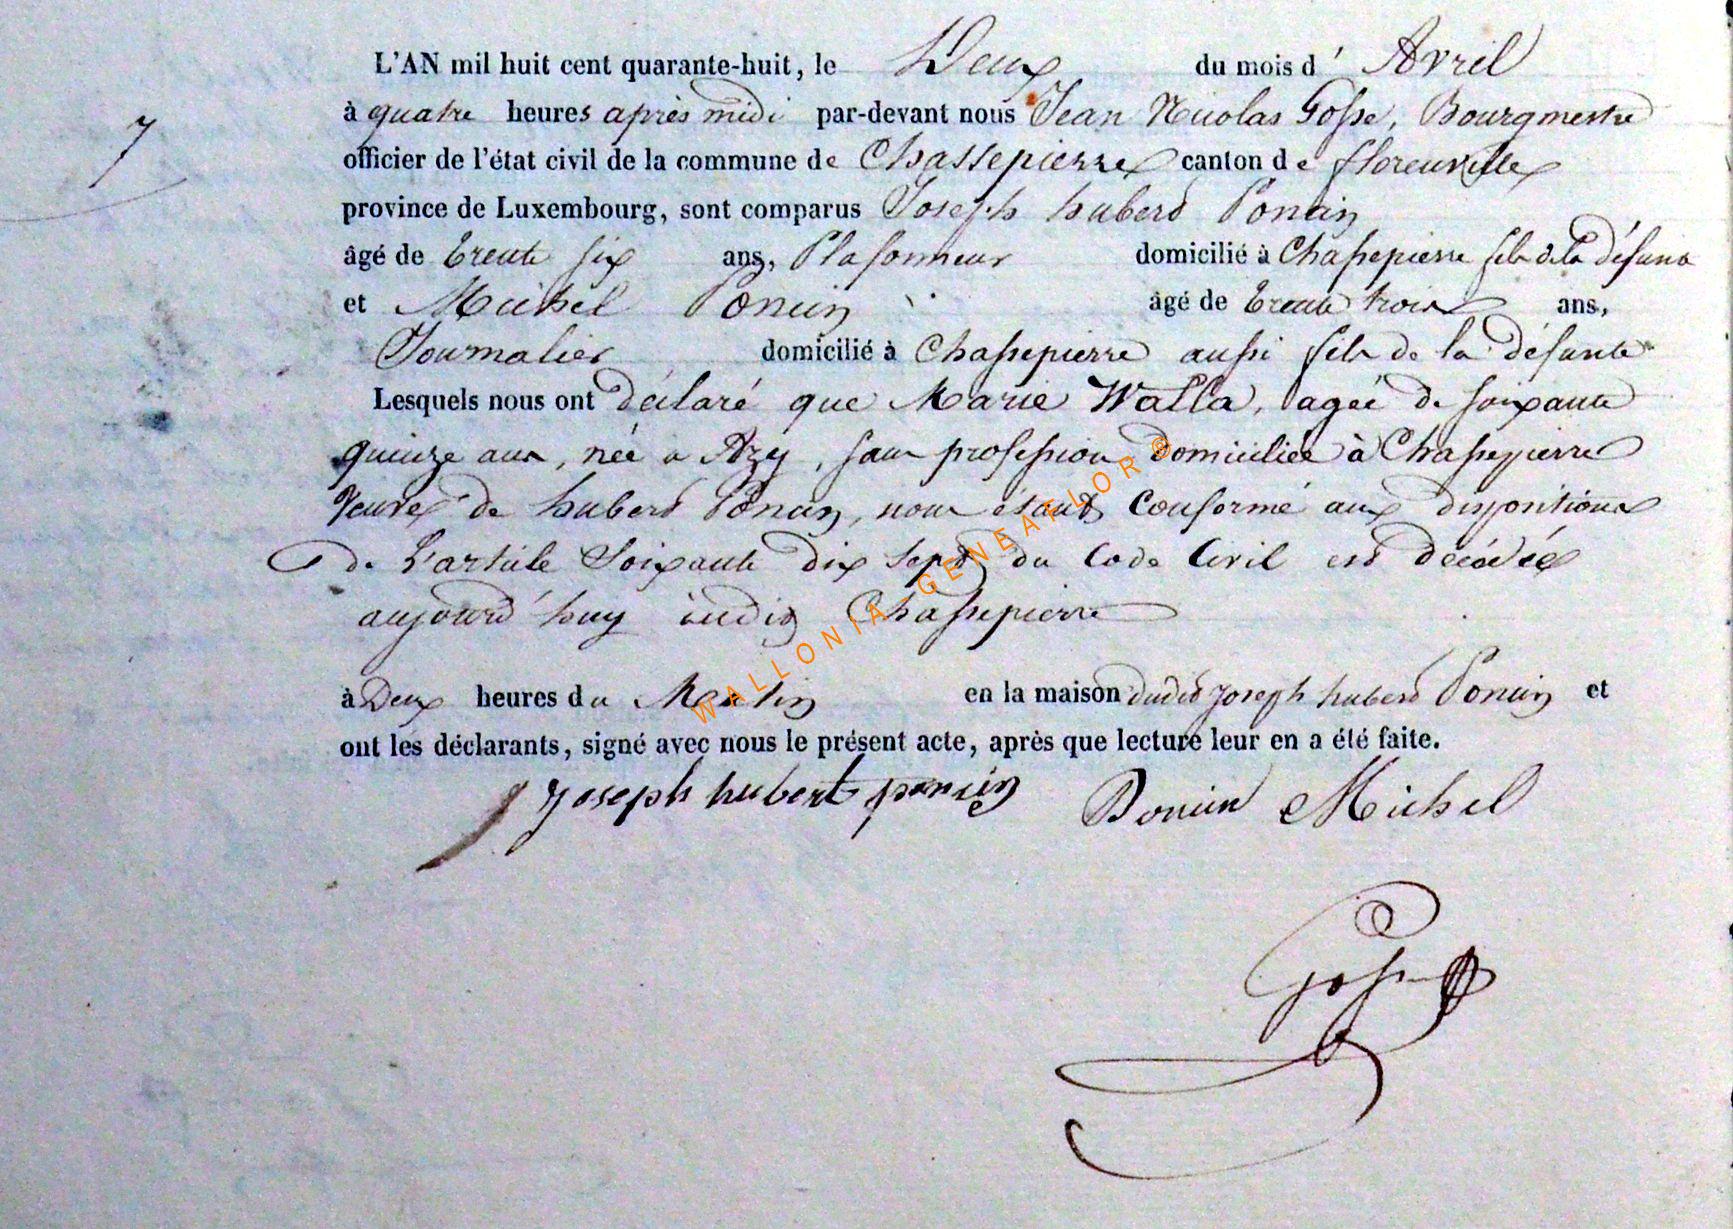 L'AN mil huit cent quarante-huit, le Deux du mois d' Avril
7
à quatre heures après midi par-devant nous Jean Nicolas Gosse, Bourgmestre
officier de l'état civil de la commune de Chassepierre canton de florenville
province de Luxembourg, sont comparus Joseph hubert Poncin
âgé de trente six ans, Plafonneur domicilié à Chassepierre fils de la défunte
et Michel Poncin âgé de trente trois ans,
Journalier domicilié à Chassepierre aussi fils de la défunte
Lesquels nous ont déclaré que Marie Walla, agée de soixante
quinze ans, née a Azy, sans profession domiciliée à Chassepierre
Veuve de hubert Poncin, nous étant conformé aux dispositions
de L'article Soixante dix sept du Code Civil est décédée
aujourd'huy audit Chassepierre
à Deux heures du Matin en la maison dudit joseph hubert Poncin et
ont les déclarants, signé avec nous le présent acte, après que lecture leur en a été faite.
joseph hubert poncin Poncin Michel
Gosse
WALLONIA-GENEAFLOR ®